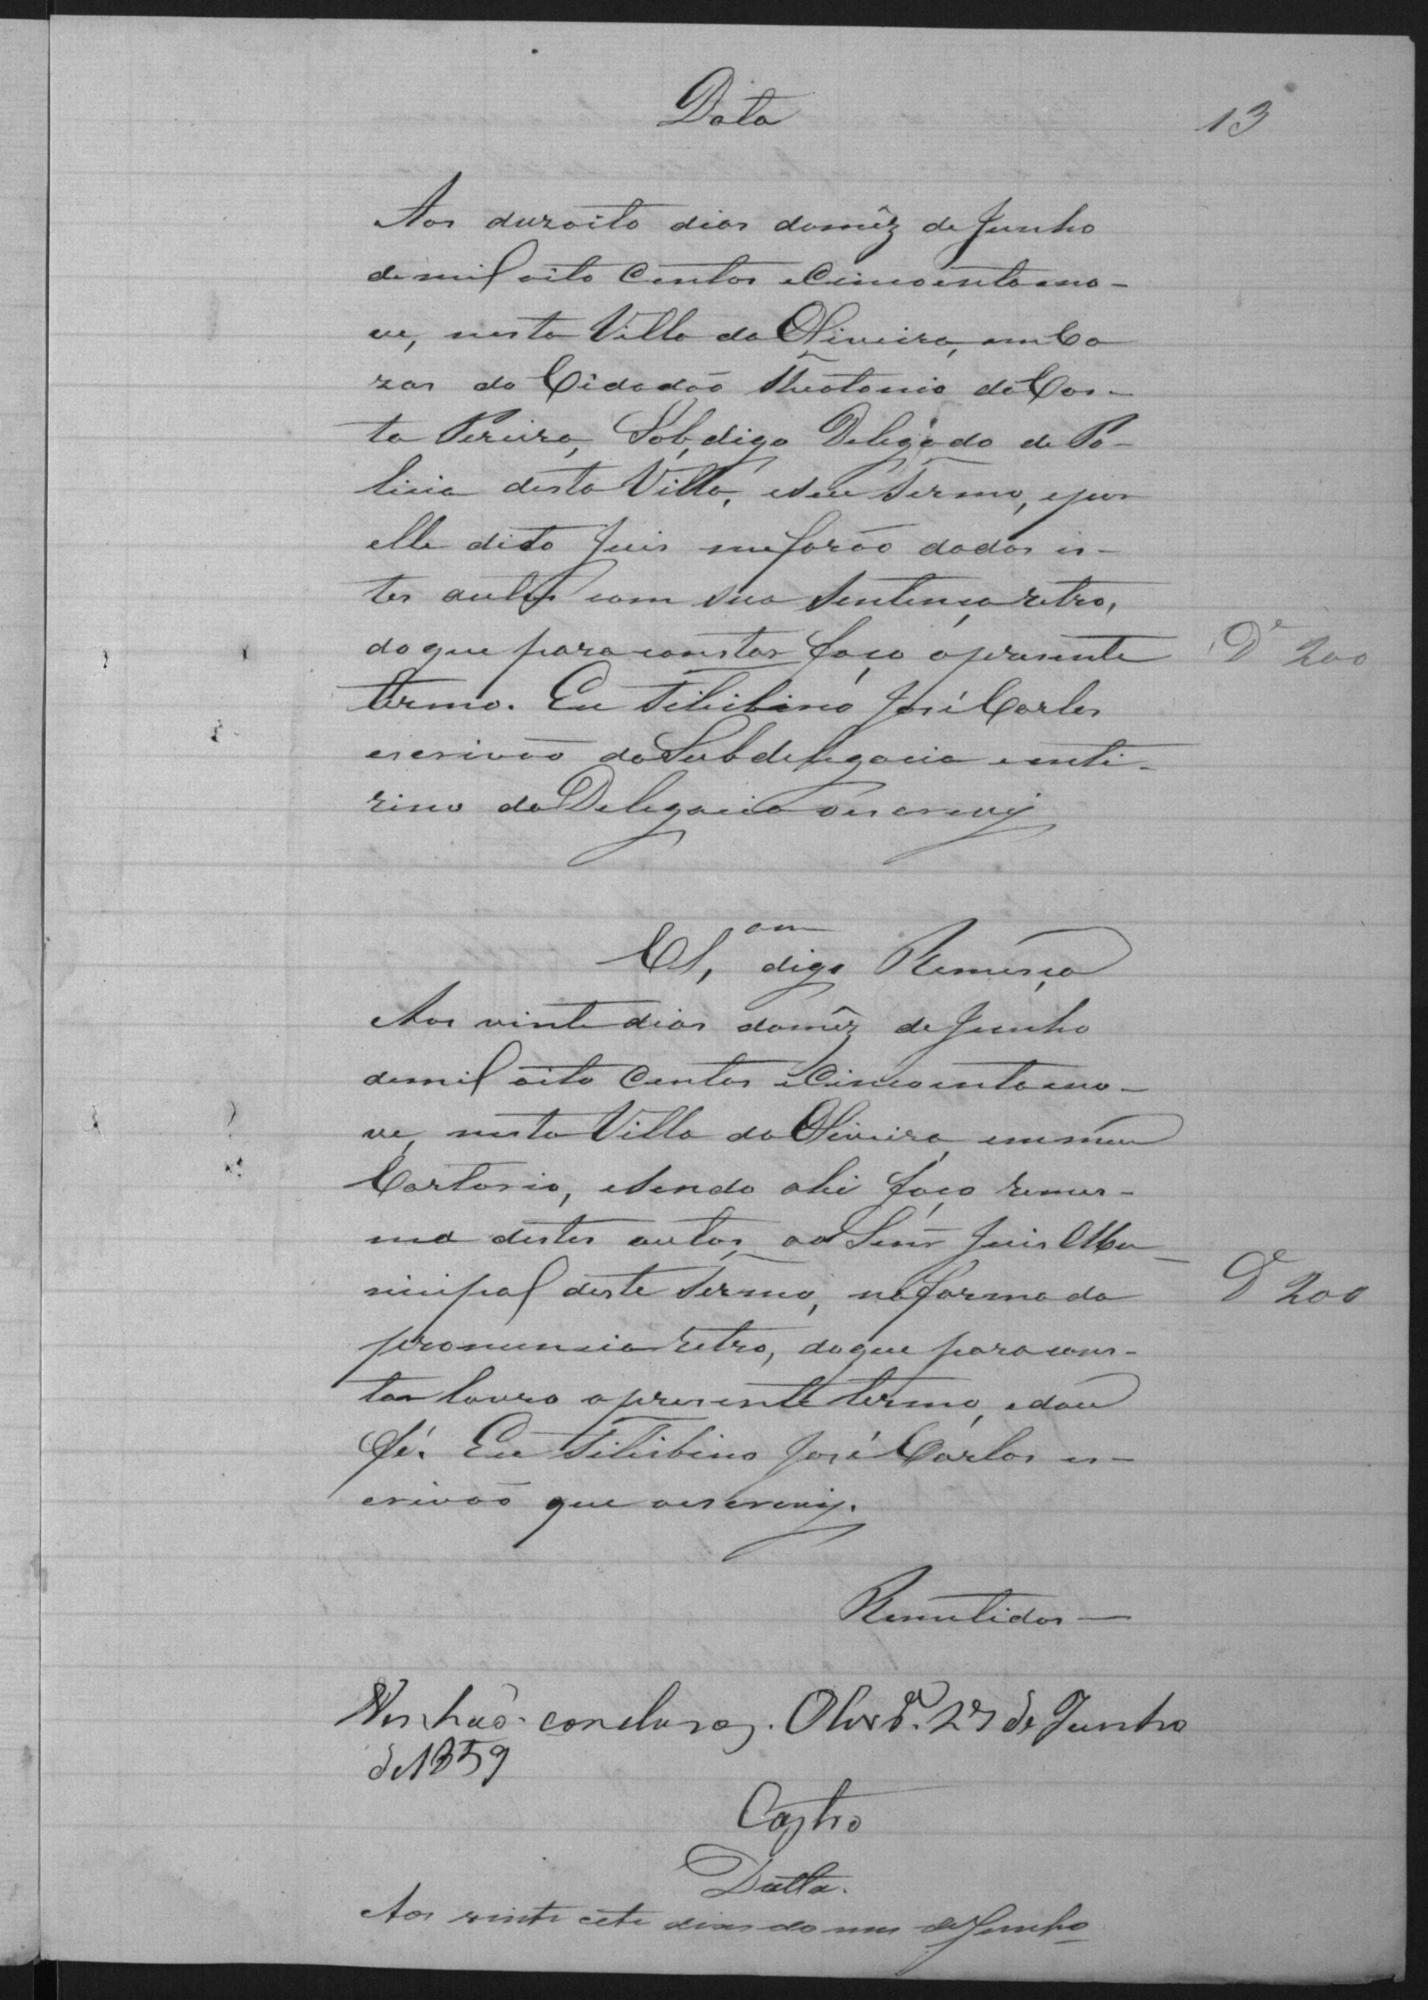 Data
13
Aos dezoito dias do mêz de Junho
de mil oito centos e Cincoenta e no-
ve, nesta Villa da Oliveira, em Ca
zas do Cidadão Theotonio da Cos-
ta Pereira, Sob, digo Delegado de Po-
licia desta Villa, e seu Termo, e por
elle dito Juis me forão dados es-
tes autos com sua Sentença retro,
do que para constar faço o presente
D.e 200
termo. Eu Filisbino José Carlos
escrivão da Subdelegacia e inti-
rino da Delegacia o escrevij
Cl.am digo Remeça
Aos vinte dias do mêz de Junho
de mil oito centos e Cincoenta e no-
ve, nesta Villa da Oliveira, em meu
Cartorio, e sendo ahi faço remes-
sa destes autos, ao Senr Juis Mu-
nicipal deste Termo, na forma da
D.e 200
pronuncia retro, do que para cons-
tar lavro o presente termo, e dou
fé. Eu Filisbino José Carlos es-
crivão que o escrevij.
Remetidos —
Venhão conclusos. Olivr.a 27 de Junho
de 1859
Castro
Datta.
Aos vinte cete dias do mes de Junho